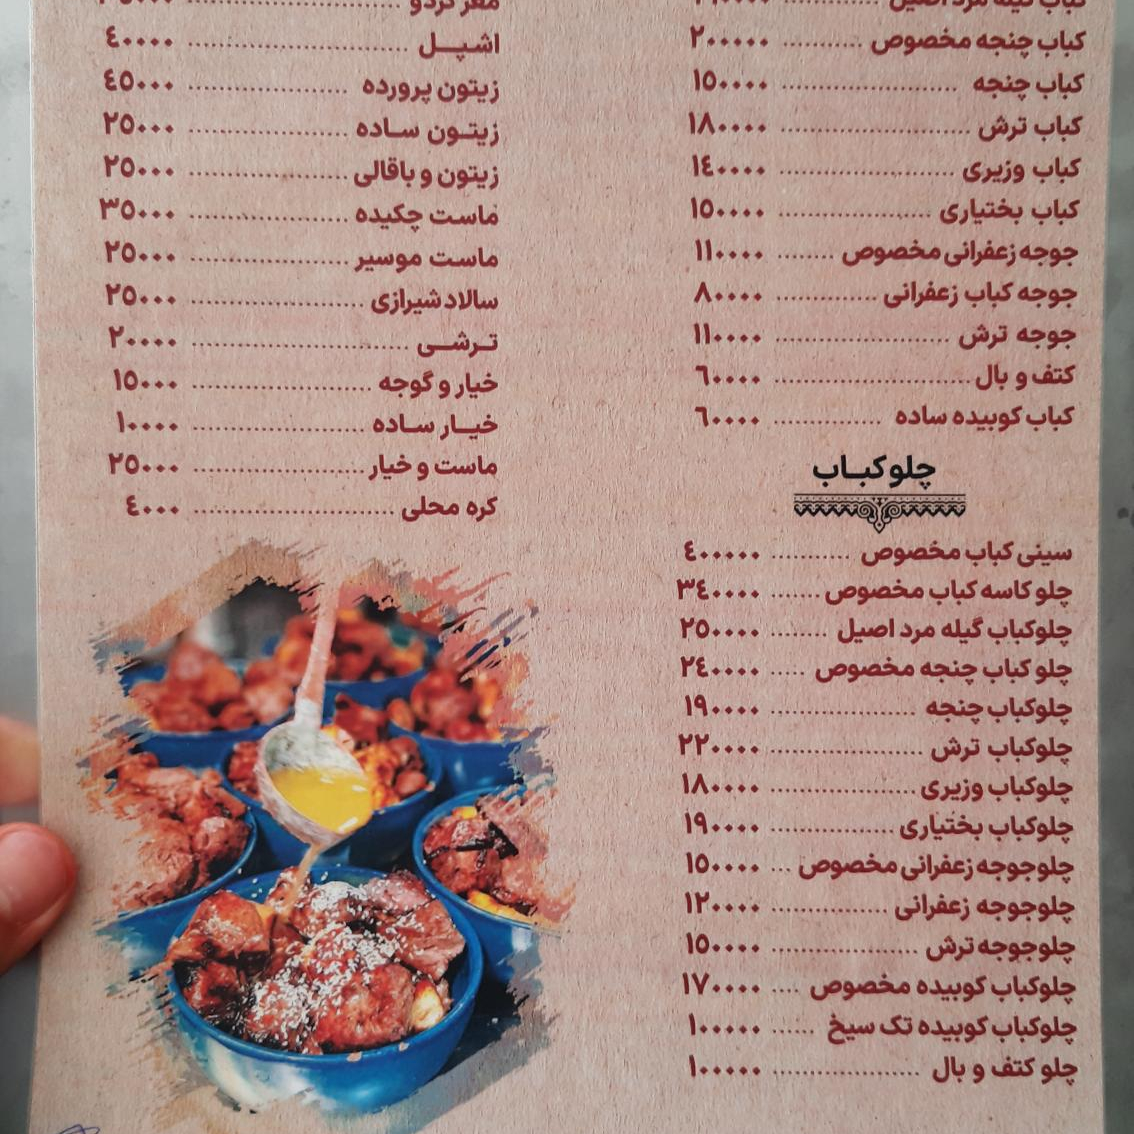 کباب گیله مرد اصیل
کباب چنجه مخصوص ........... ۲۰۰۰۰۰
کباب چنجه ........................ ۱۵۰۰۰۰
کباب ترش .......................... ۱۸۰۰۰۰
کباب وزیری ........................ ۱٤۰۰۰۰
کباب بختیاری ..................... ۱۵۰۰۰۰
جوجه زعفرانی مخصوص ........ ۱۱۰۰۰۰
جوجه کباب زعفرانی .............. ۸۰۰۰۰
جوجه ترش ........................ ۱۱۰۰۰۰
کتف و بال ........................... ٦۰۰۰۰
کباب کوبیده ساده ............... ٦۰۰۰۰
چلوکباب
سینی کباب مخصوص ........... ٤۰۰۰۰۰
چلو کاسه کباب مخصوص ....... ۳٤۰۰۰۰
چلوکباب گیله مرد اصیل ........ ۲۵۰۰۰۰
چلو کباب چنجه مخصوص ..... ۲٤۰۰۰۰
چلوکباب چنجه .................... ۱۹۰۰۰۰
چلوکباب ترش ..................... ۲۲۰۰۰۰
چلوکباب وزیری .................... ۱۸۰۰۰۰
چلوکباب بختیاری ................. ۱۹۰۰۰۰
چلوجوجه زعفرانی مخصوص ... ۱۵۰۰۰۰
چلوجوجه زعفرانی ................ ۱۲۰۰۰۰
چلوجوجه ترش .................... ۱۵۰۰۰۰
چلوکباب کوبیده مخصوص .... ۱۷۰۰۰۰
چلوکباب کوبیده تک سیخ ...... ۱۰۰۰۰۰
چلو کتف و بال .................... ۱۰۰۰۰۰
مغز گردو
اشپل ............................... ٤۰۰۰۰
زیتون پرورده ...................... ٤۵۰۰۰
زیتون ساده ........................ ۲۵۰۰۰
زیتون و باقالی ..................... ۲۵۰۰۰
ماست چکیده ...................... ۳۵۰۰۰
ماست موسیر ...................... ۲۵۰۰۰
سالاد شیرازی ...................... ۲۵۰۰۰
ترشی ............................... ۲۰۰۰۰
خیار و گوجه ........................ ۱۵۰۰۰
خیار ساده .......................... ۱۰۰۰۰
ماست و خیار ....................... ۲۵۰۰۰
کره محلی ........................... ٤۰۰۰